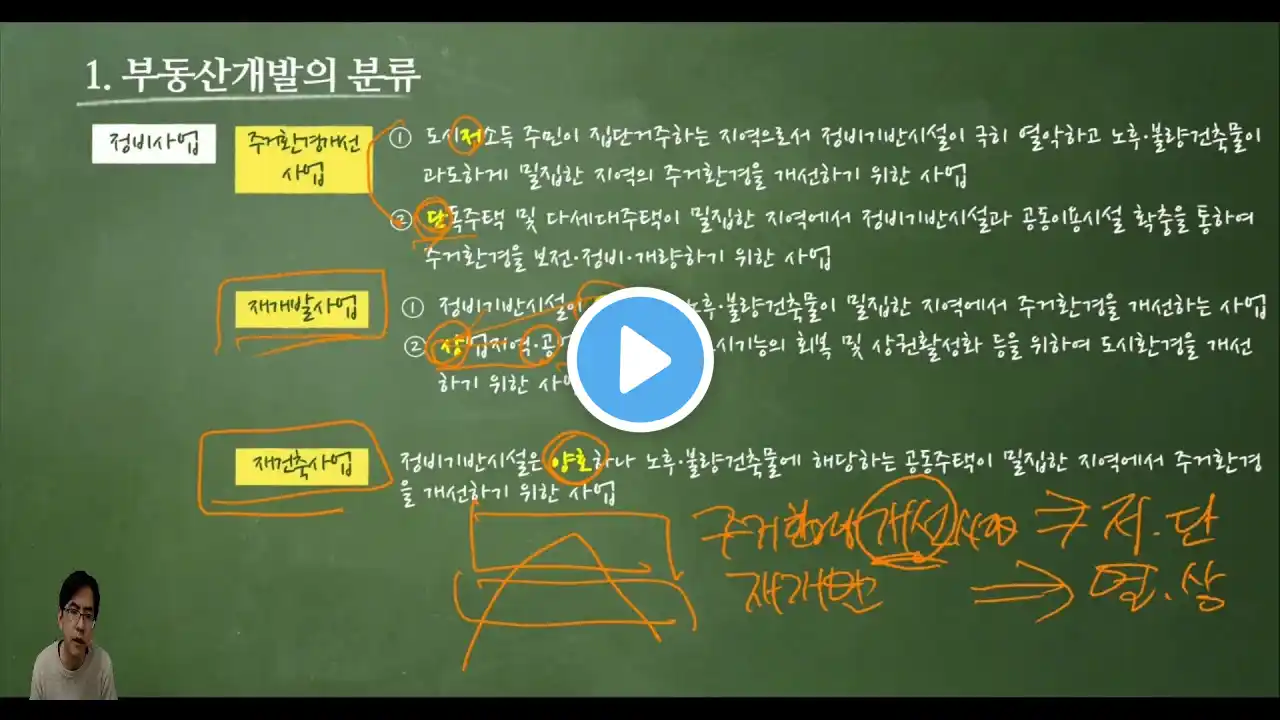 1. 부동산개발의 분류
정비사업
주거환경개선
사업
① 도시저소득 주민이 집단거주하는 지역으로서 정비기반시설이 극히 열악하고 노후·불량건축물이
과도하게 밀집한 지역의 주거환경을 개선하기 위한 사업
② 단독주택 및 다세대주택이 밀집한 지역에서 정비기반시설과 공동이용시설 확충을 통하여
주거환경을 보전·정비·개량하기 위한 사업
재개발사업
① 정비기반시설이 노후·불량건축물이 밀집한 지역에서 주거환경을 개선하는 사업
② 상업지역·공 시기능의 회복 및 상권활성화 등을 위하여 도시환경을 개선
하기 위한 사업
재건축사업
정비기반시설은 양호하나 노후·불량건축물에 해당하는 공동주택이 밀집한 지역에서 주거환경
을 개선하기 위한 사업
주거환경개선사업 ⇒ 저.단
재개발 ⇒ 열.상